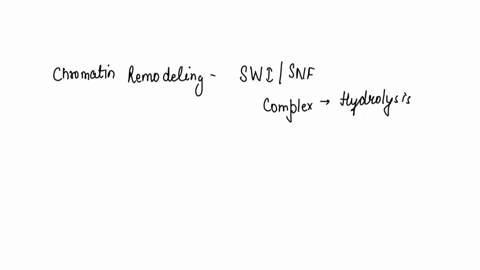 Chromatin Remodeling - SWI/SNF
Complex → Hydrolysis